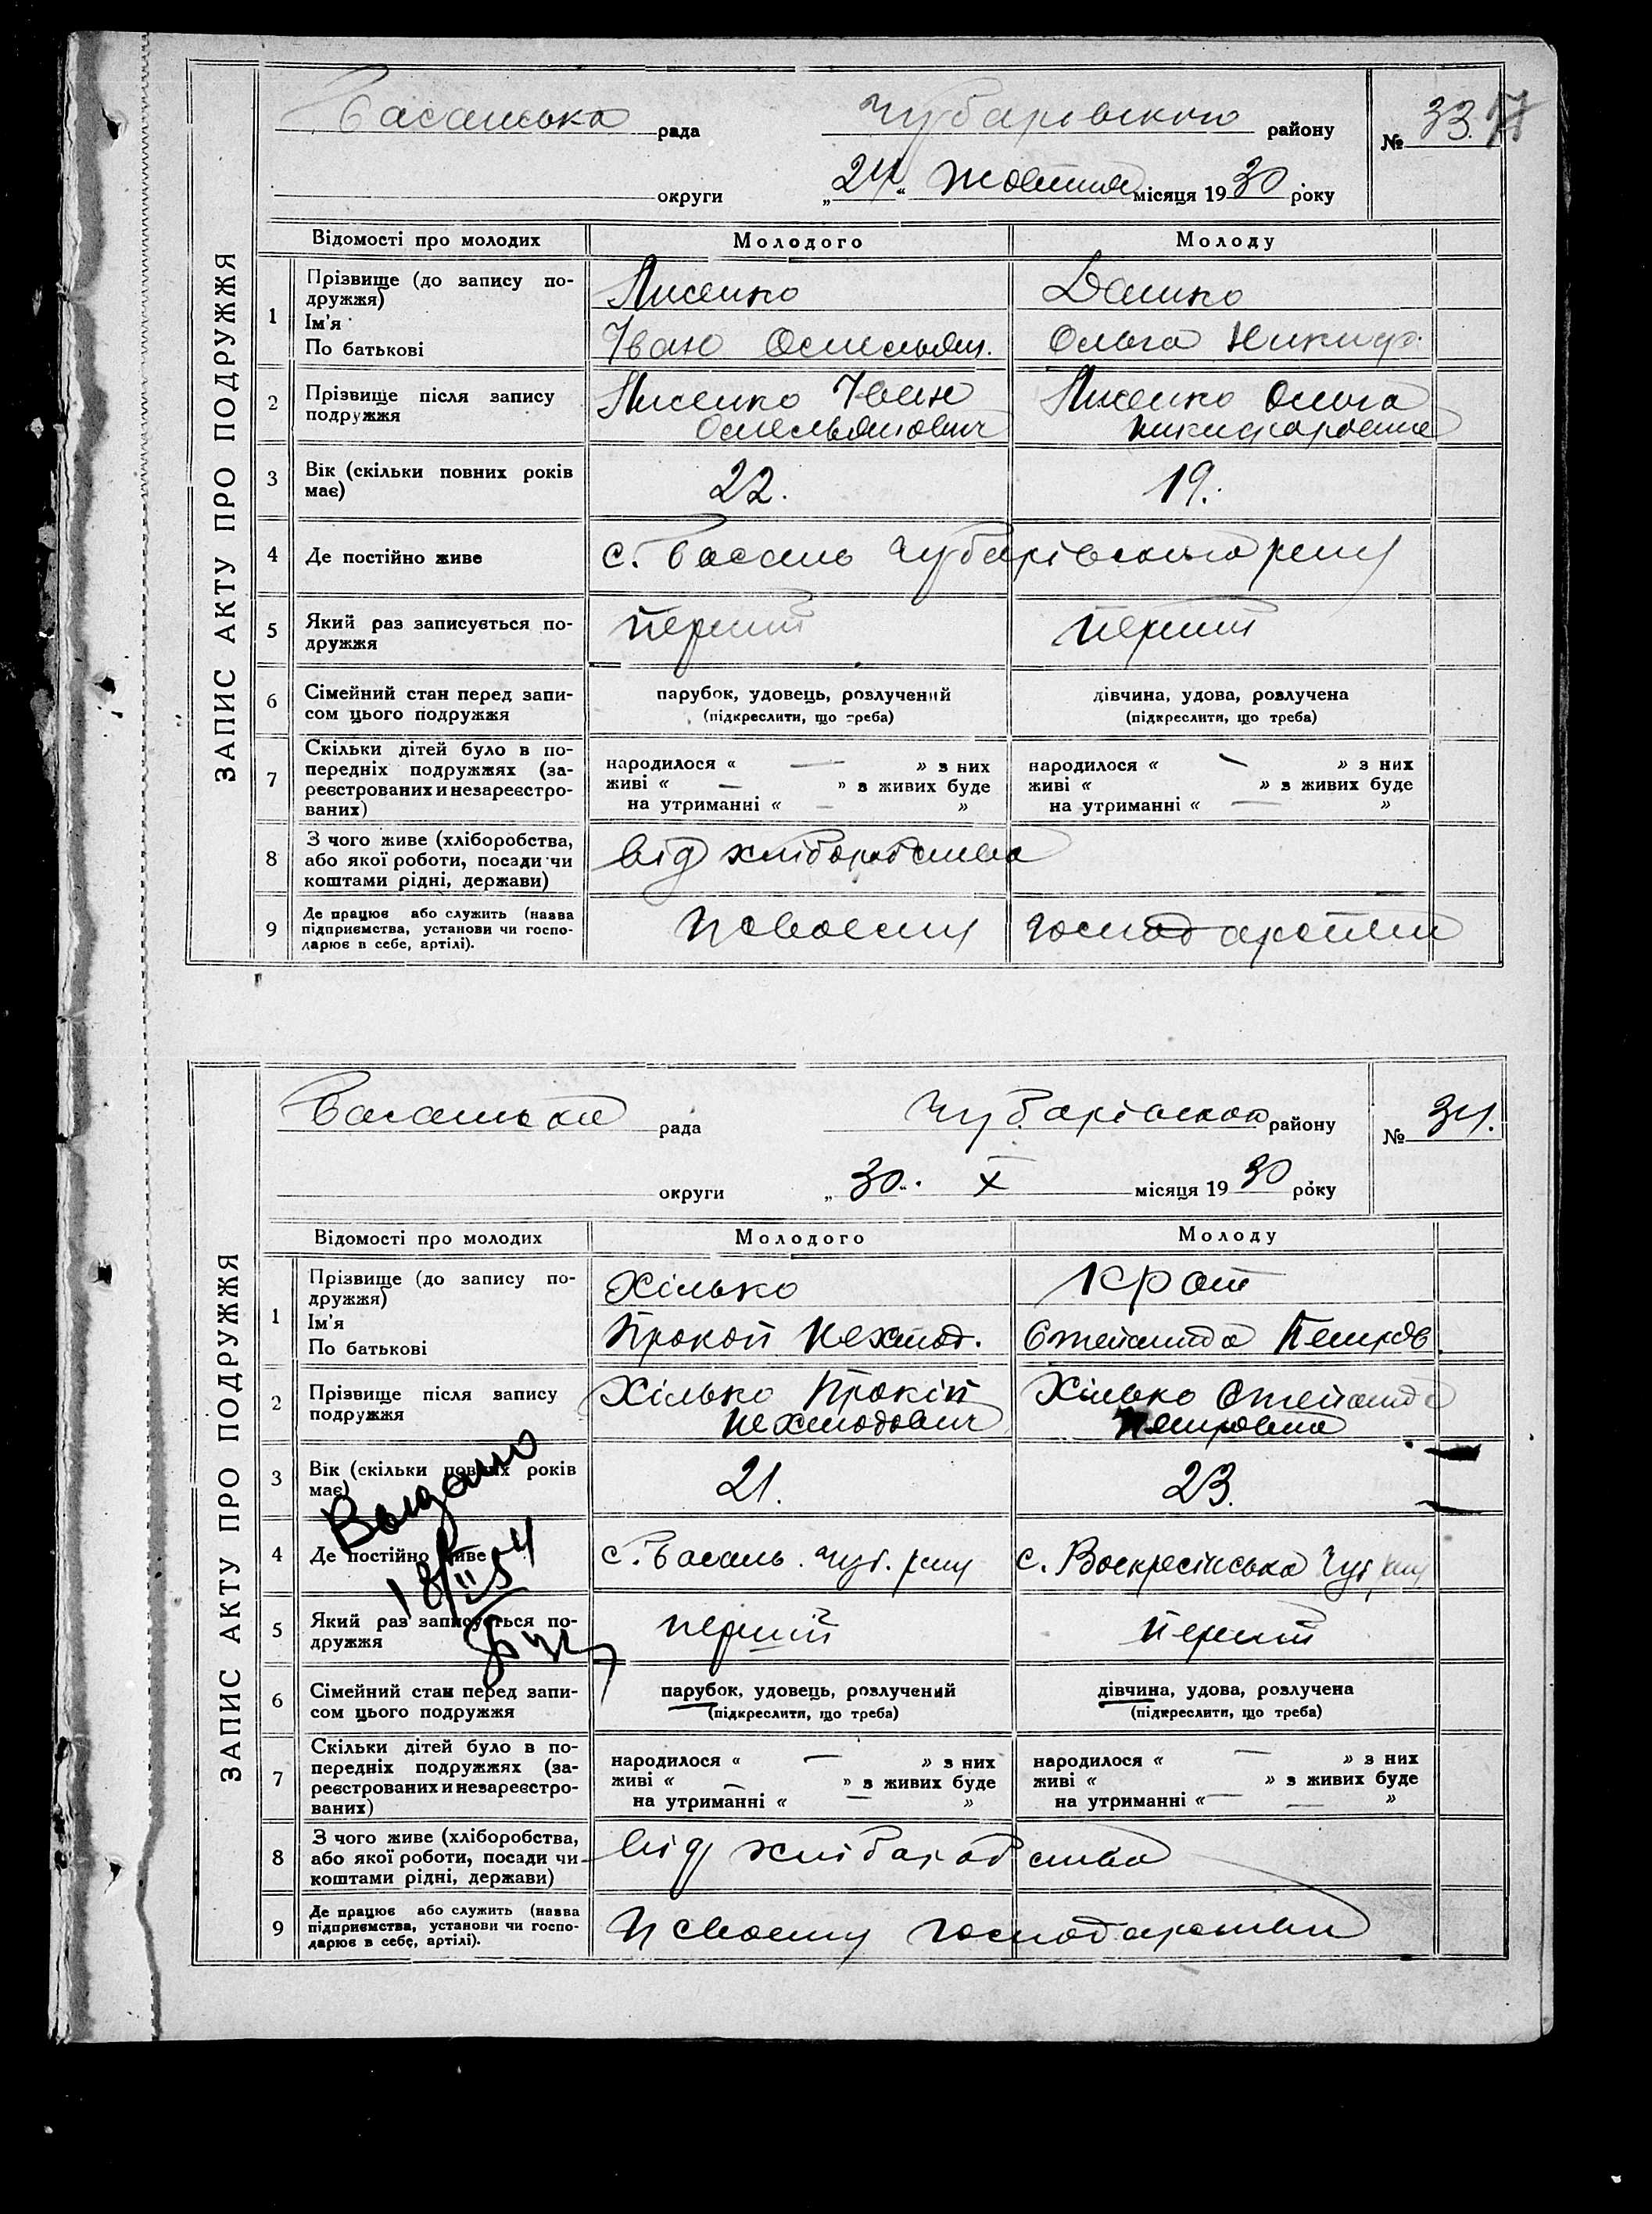 ЗАПИС АКТУ ПРО ПОДРУЖЖЯ
Басанська рада Чубарівського району № 33.
округи „24" жовтня місяця 1930 року
Відомості про молодих Молодого Молоду
1 Прізвище (до запису по-
дружжя) Лисенко Дашко
Ім'я
По батькові Іван Омельян. Ольга Никиф.
2 Прізвище після запису
подружжя Лисенко Іван Лисенко Ольга
Омельянович Никифоровна
3 Вік (скільки повних років
має) 22. 19.
4 Де постійно живе с. Басань Чубарівського р-ну
5 Який раз записується по-
дружжя перший перший
6 Сімейний стан перед запи-
сом цього подружжя
парубок, удовець, розлучений дівчина, удова, розлучена
(підкреслити, що треба) (підкреслити, що треба)
7 Скільки дітей було в по-
передніх подружжях (за-
реєстрованих и незареєстро-
ваних)
народилося « — » з них народилося « — » з них
живі « — » з живих буде живі « » з живих буде
на утриманні « — » на утриманні « — »
8 З чого живе (хліборобства,
або якої роботи, посади чи
коштами рідні, держави) від хліборобства
9 Де працює або служить (назва
підприємства, установи чи госпо-
дарює в себе, артілі). в своєму господарстві
ЗАПИС АКТУ ПРО ПОДРУЖЖЯ
Басанська рада Чубарівського району № 34.
округи „30." X місяця 1930 року
Відомості про молодих Молодого Молоду
1 Прізвище (до запису по-
дружжя) Хілько Крот
Ім'я
По батькові Прокоп Нехмод. Степанида Петров.
2 Прізвище після запису
подружжя Хілько Прокіп Хілько Степанида
Нехмодович Петровна
3 Вік (скільки повних років
має) 21. 23.
4 Де постійно живе с. Басань. Чуб. р-ну с. Воскресінська Чуб. р-ну
5 Який раз записується по-
дружжя перший перший
6 Сімейний стан перед запи-
сом цього подружжя
парубок, удовець, розлучений дівчина, удова, розлучена
(підкреслити, що треба) (підкреслити, що треба)
7 Скільки дітей було в по-
передніх подружжях (за-
реєстрованих и незареєстро-
ваних)
народилося « — » з них народилося « — » з них
живі « — » з живих буде живі « » з живих буде
на утриманні « — » на утриманні « — »
8 З чого живе (хліборобства,
або якої роботи, посади чи
коштами рідні, держави) від хліборобства
9 Де працює або служить (назва
підприємства, установи чи госпо-
дарює в себе, артілі). в своєму господарстві
18/II 54